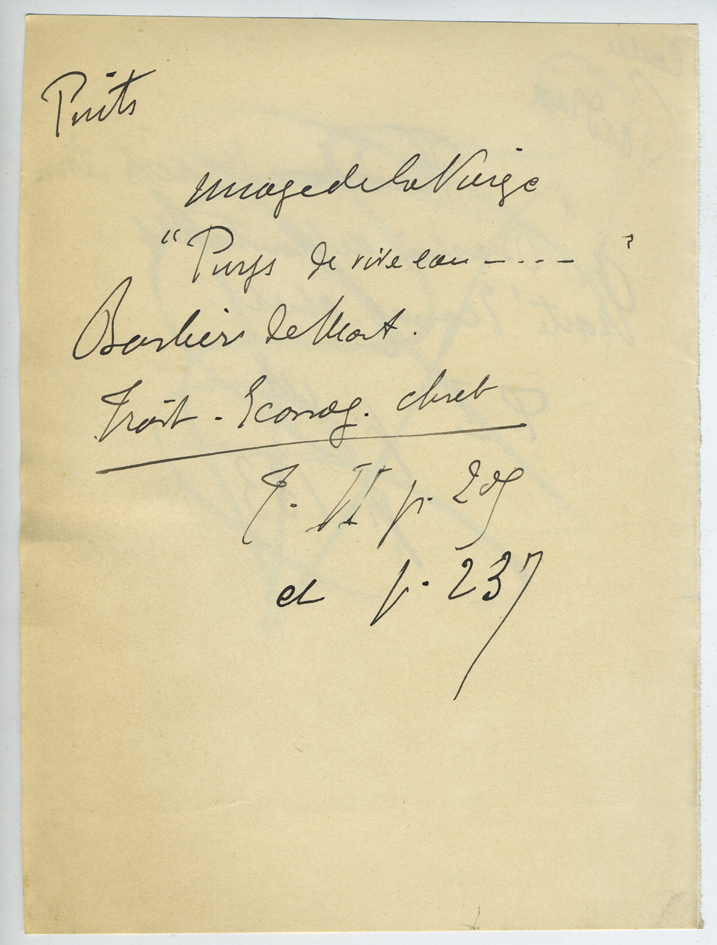 Puits
image de la Vierge
"Puys de vive eau - - - - "
Barbier de Mont.
Trait. Iconog. chret
T. II p. 205
et p. 237